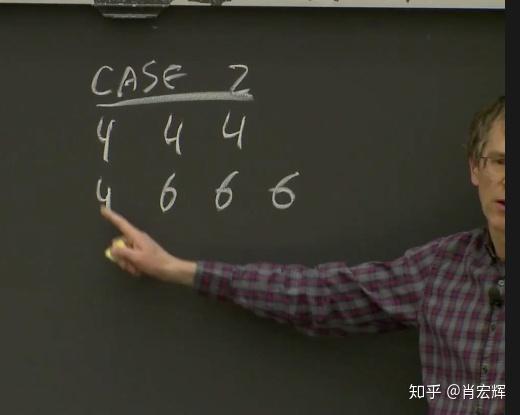 CASE 2
4 4 4
4 6 6 6
知乎 @肖宏辉